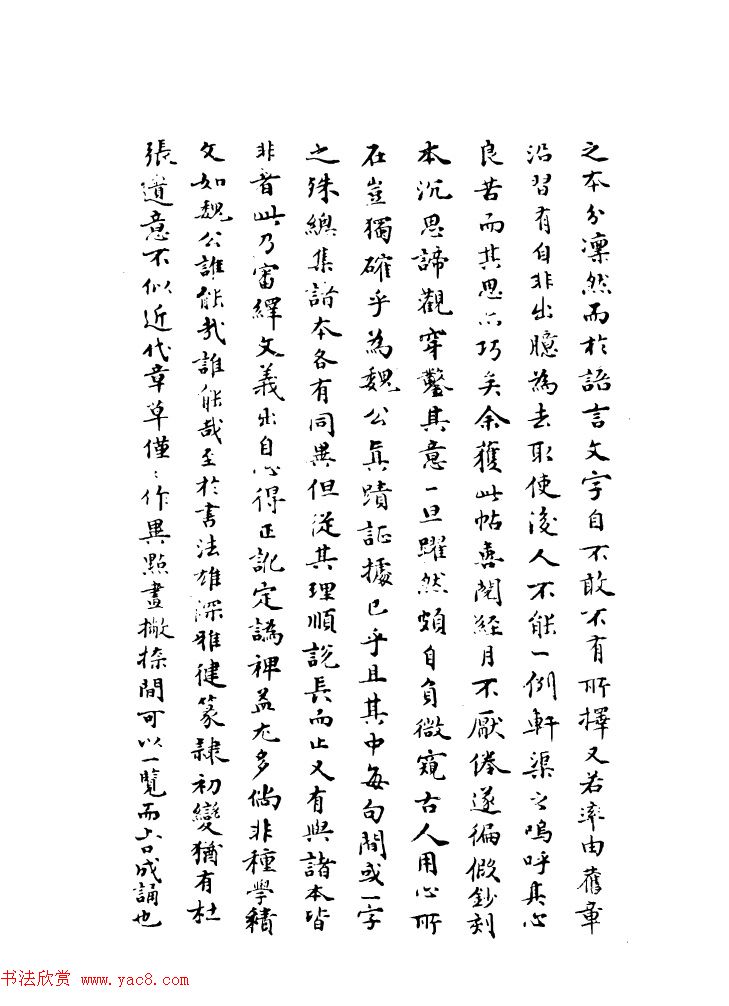 之本分凜然而於語言文字自不敢不有所擇又若率由舊章
沿習有自非出臆為去取使後人不能一例軒渠之嗚呼其心
良苦而其思亦巧矣余獲此帖展閱經月不厭倦遂徧假鈔刻
本沉思諦觀穿鑿其意一旦躍然頗自負微窺古人用心所
在豈獨確乎為魏公真蹟証據已乎且其中每句間或一字
之殊總集諸本各有同異但從其理順說長而止又有與諸本皆
非者此乃審繹文義出自心得正訛定譌裨益尤多倘非種學績
文如魏公誰能哉誰能哉至於書法雄深雅健篆隸初變猶有杜
張遺意不似近代章草僅〻作異點畫撇捺間可以一覽而上口成誦也
书法欣赏 www.yac8.com